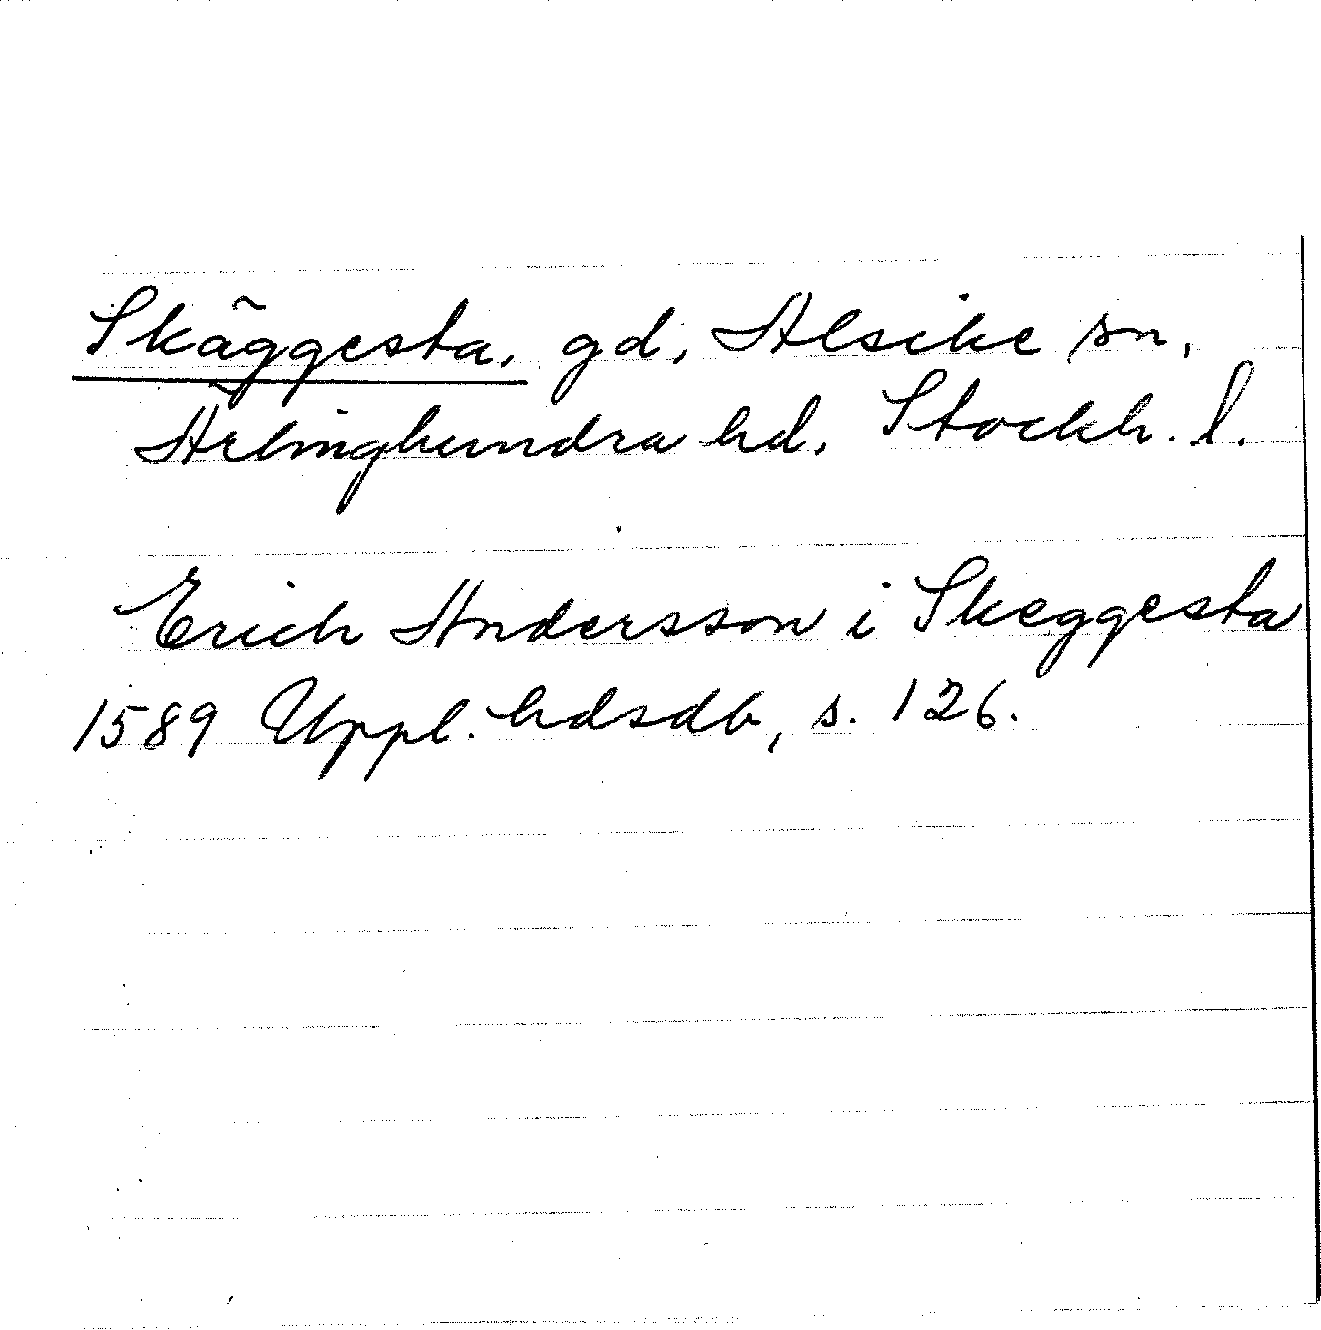 Skäggesta, gd, Alsike sn,
Ärlinghundra hd, Stockh. l.
Erich Andersson i Skeggesta
1589 Uppl. hdsdb, s. 126.